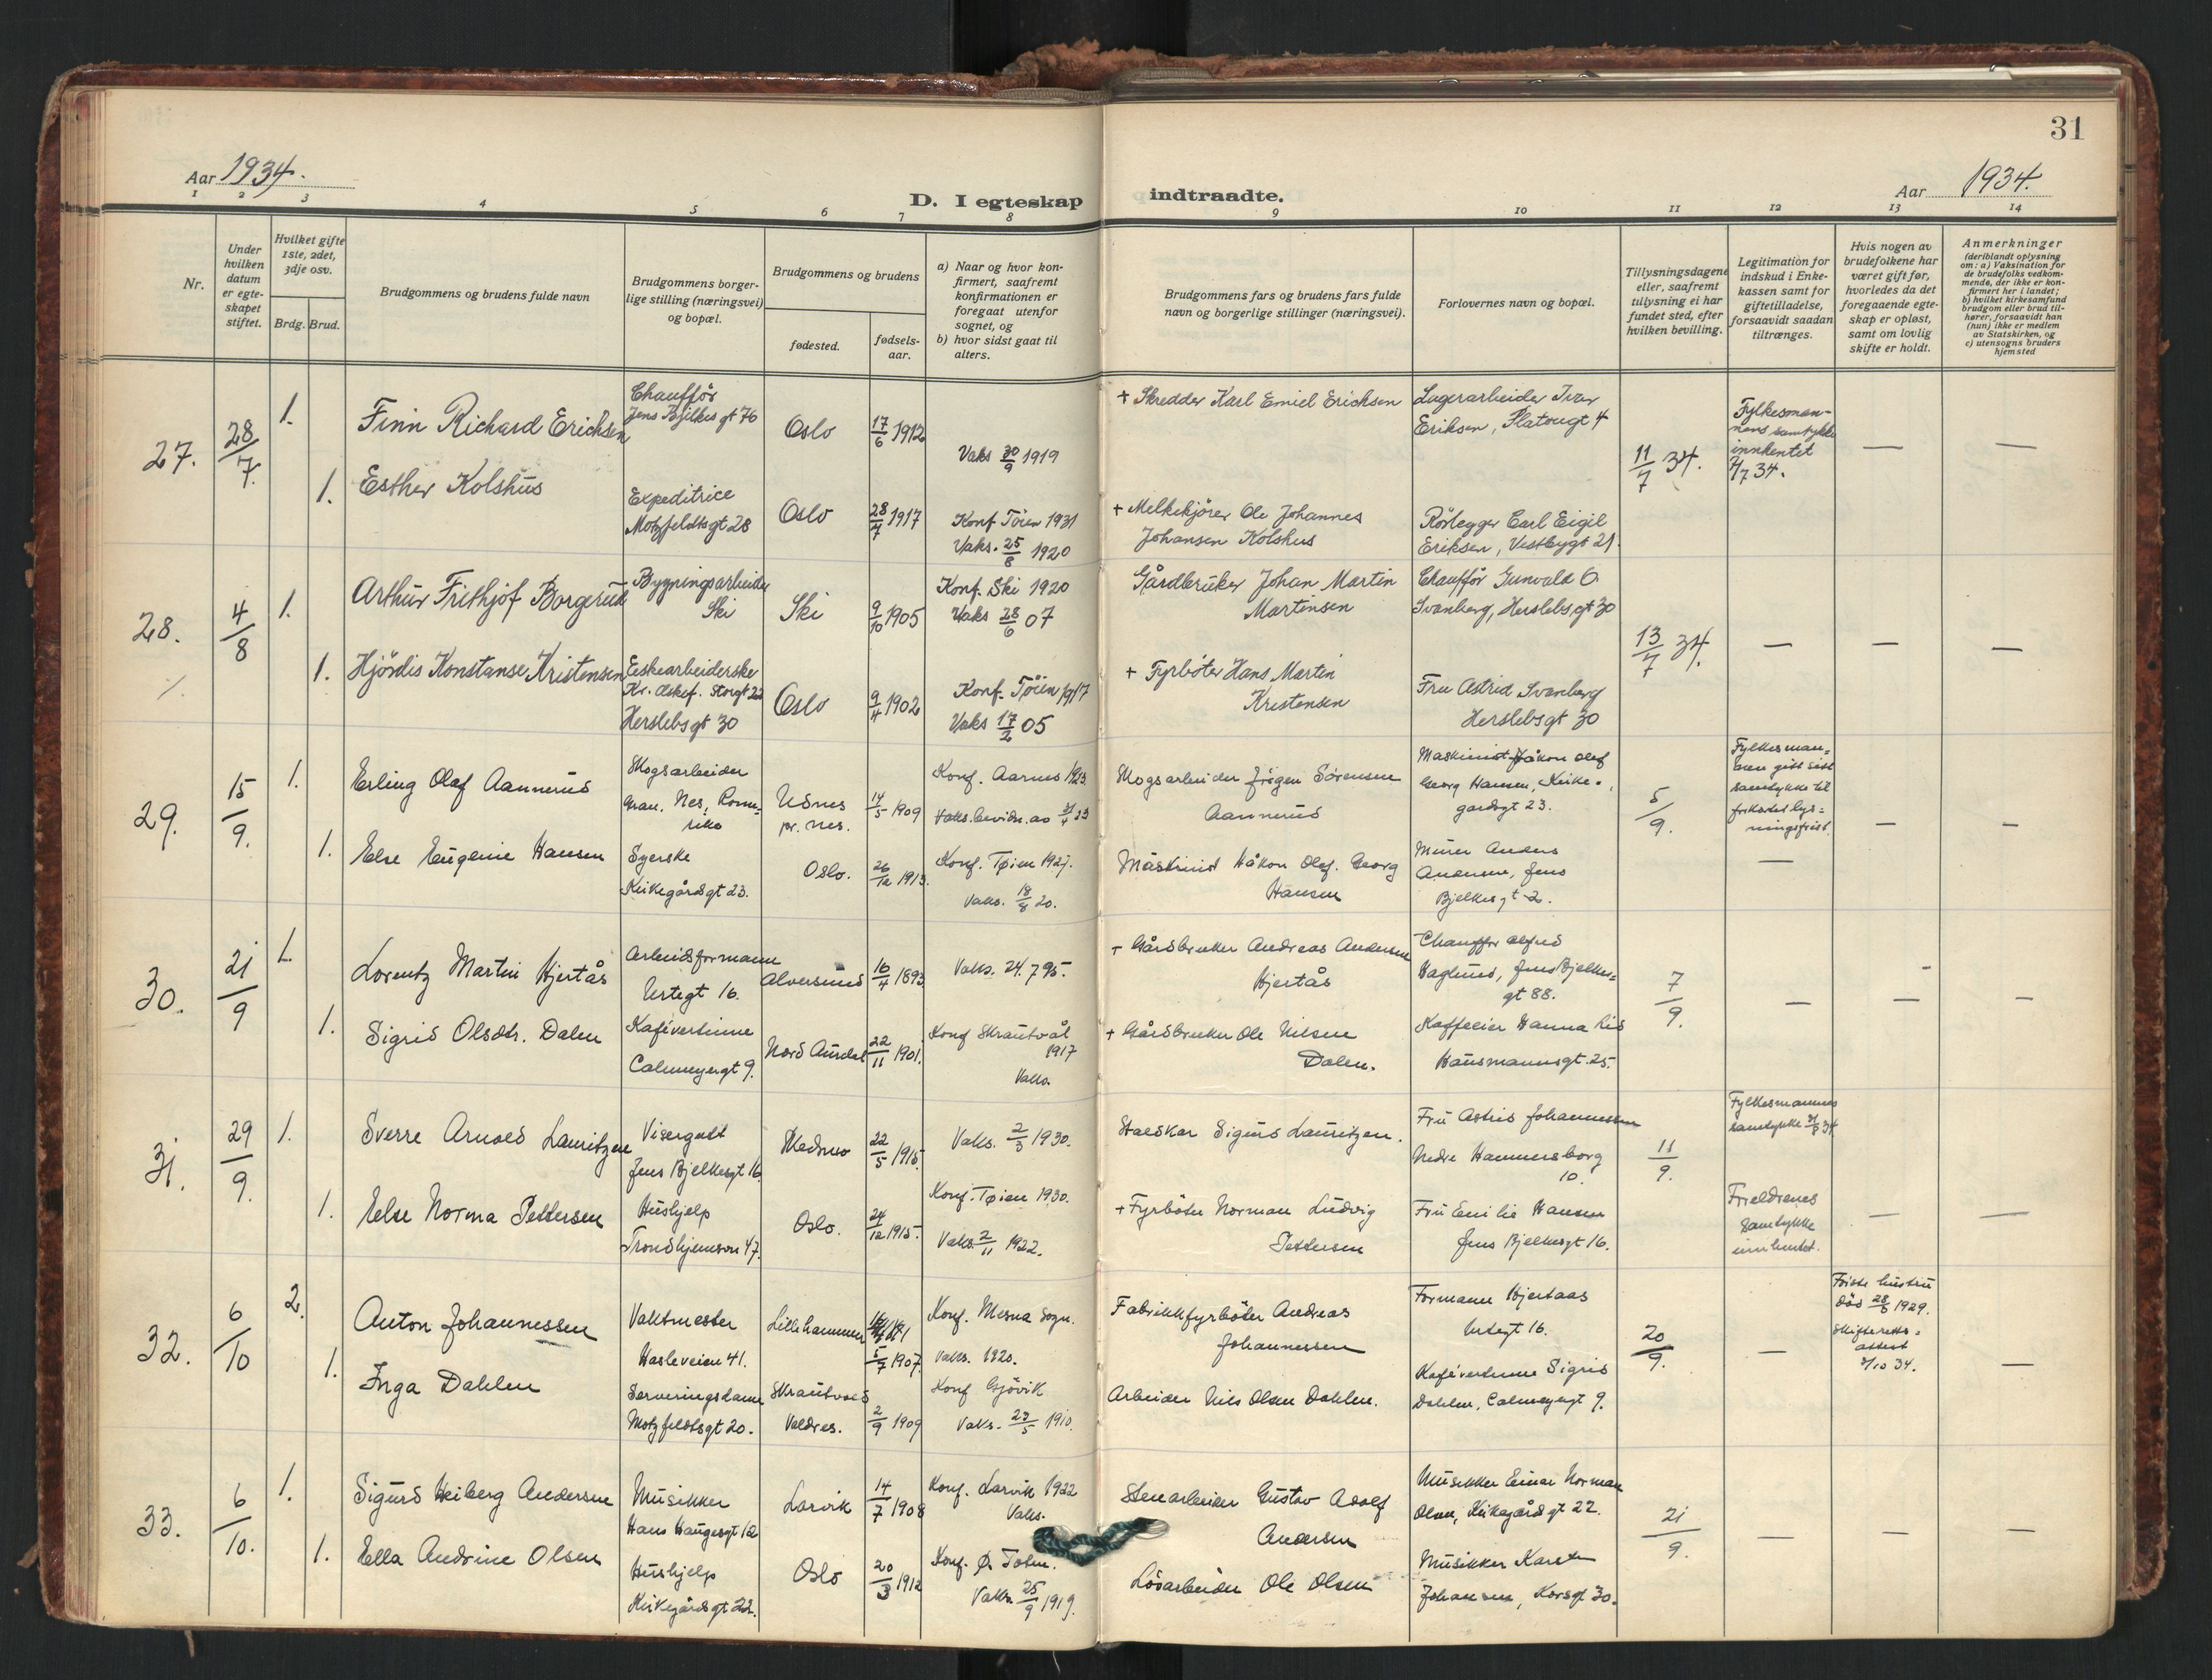 31
Aar 1934.
D. I egteskap indtraadte.
Aar 1934.
1 2 3 4 5 6 7 8 9 10 11 12 13 14
Nr.
Under
hvilken
datum
er egte-
skapet
stiftet.
Hvilket gifte
1ste, 2det,
3dje osv.
Brdg. Brud.
Brudgommens og brudens fulde navn
Brudgommens borger-
lige stilling (næringsvei)
og bopæl.
Brudgommens og brudens
fødested.
fødsels-
aar.
a) Naar og hvor kon-
firmert, saafremt
konfirmationen er
foregaat utenfor
sognet, og
b) hvor sidst gaat til
alters.
Brudgommens fars og brudens fars fulde
navn og borgerlige stillinger (næringsvei).
Forlovernes navn og bopæl.
Tillysningsdagene
eller, saafremt
tillysning ei har
fundet sted, efter
hvilken bevilling.
Legitimation for
indskud i Enke-
kassen samt for
giftetilladelse,
forsaavidt saadan
tiltrænges.
Hvis nogen av
brudefolkene har
været gift før,
hvorledes da det
foregaaende egte-
skap er opløst,
samt om lovlig
skifte er holdt.
Anmerkninger
(deriblandt oplysning
om: a) Vaksination for
de brudefolks vedkom-
mende, der ikke er kon-
firmert her i landet;
b) hvilket kirkesamfund
brudgom eller brud til-
hører, forsaavidt han
(hun) ikke er medlem
av Statskirken, og
c) utensogns bruders
hjemsted
27.
28/7.
1.
Finn Richard Erichsen
Chaufför
Jens Bjelkes gt 76
Oslo
17/6 1912
Vaks 30/9 1919
+ Skredder Karl Emiel Erichsen
Lagerarbeider Ivar
Eriksen, Platougt 4
11/7 34.
Fylkesman-
nens samtykke
innhentet
7/7 34.
—
—
1.
Esther Kolshus
Expeditrice
Motzfeldtsgt 28
Oslo
28/7 1917
Konf Töien 1931
Vaks. 25/8 1920
+ Melkekjörer Ole Johannes
Johansen Kolshus
Rörlegger Carl Eigil
Eriksen, Vestbygt 21.
28.
4/8
1.
Arthur Frithjof Borgerud
Bygningsarbeider
Ski
Ski
9/10 1905
Konf. Ski 1920
Vaks 28/6 07
Gårdbruker Johan Martin
Martinsen
Chaufför Gunvald O.
Svanberg, Herslebs gt 30
13/7 34.
—
—
—
1.
Hjördis Konstanse Kristensen
Eskearbeiderske
Kr. Eskef. Storgt 22
Herslebsgt 30
Oslo
9/4 1902
Konf. Töien 1917
Vaks 17/2 05
+ Fyrböter Hans Martin
Kristensen
Fru Astrid Svanberg
Herslebsgt 30
29.
15/9.
1.
Erling Olaf Aannerud
Skogsarbeider
Nes, Rome-
rike
Udnes
pr. Nes.
14/5 1909
Konf. Aarnes 1923.
Skogsarbeider Jörgen Sörensen
Aannerud
Maskinist Håkon Olef
Georg Hansen, Kirke-
gardsgt 23.
5/9.
Fylkesman-
nen gitt sitt
samtykke til
forkortet lys-
ningsfrist.
—
—
1.
Else Eugenie Hansen
Syerske
Kirkegårdsgt 23.
Oslo.
26/12 1913.
Konf. Tøien 1927.
Vaks. 18/8 20.
Maskinist Håkon Olef. Georg
Hansen
Murer Anders
Andersen, Jens
Bjelkesgt 2.
—
30.
21/9
1.
Lorentz Martin Hjertås
Arbeidsformann
Urtegt 16.
Alversund
16/4 1893
Vaks. 24.7 95.
+ Gårdbruker Andreas Andersen
Hjertås
Chauffør Alfred
Haglund, Jens Bjelkes-
gt 88.
7/9.
—
—
—
1.
Sigrid Olsdtr. Dalen
Kafévertinne
Calmeyergt 9.
Nord Aurdal
22/11 1901.
Konf Skrautvål
1917
Vaks.
+ Gårdbruker Ole Nilsen
Dalen.
Kaffeeier Hanna Lid
Hausmannsgt. 25.
31.
29/9.
1.
Sverre Arnold Lauritzen
Visergutt
Jens Bjelkesgt 16
Skedsmo
22/5 1915.
Vaks. 2/3 1930.
Stalskar Sigurd Lauritzen.
Fru Astrid Johannessen
Nedre Hammersborg
10.
11/9.
Fylkesmannens
samtykke 31/8 34
1.
Else Norma Pettersen
Hushjelp
Trondhjemsvn 47.
Oslo.
24/12 1915.
Konf. Tøien 1930.
Vaks. 2/11 1922.
+ Fyrböter Norman Ludvig
Pettersen
Fru Emilie Hansen
Jens Bjelkesgt 16.
Foreldrenes
samtykke
innhentet.
—
—
32.
6/10
2.
Anton Johannessen
Vaktmester
Hasleveien 41.
Lillehammer
5/7 1907.
Konf. Mesna Sogn.
Vaks. 1920.
Fabrikkfyrböter Andreas
Johannessen
Formann Hjertaas
Urtegt 16.
20/9.
—
Første hustru
död 28/8 1929.
Skifteretts-
attest
3/10 34.
—
1.
Inga Dahlen
Serveringsdame
Motzfeldtsgt 20.
Skrautvold
Valdres.
2/9 1909
Konf Gjövik
Vaks. 23/5 1910.
Arbeider Nils Olsen Dahlen.
Kafévertinne Sigrid
Dahlen, Calmeyergt 9.
33.
6/10.
1.
Sigurd Heiberg Andersen
Musikker
Hans Haugesgt 12
Larvik
14/7 1908
Konf. Larvik 1922
Vaks.
Stenarbeider Gustav Adolf
Andersen
Musikker Einar Norman
Olsen, Kirkegårdsgt 22.
21/9.
—
—
—
1.
Ella Andrine Olsen
Hushjelp
Kirkegårdsgt 22.
Oslo
20/3 1912
Konf. Ø. Toten.
Vaks. 25/9 1919.
Lösarbeider Ole Olsen
Musikker Karsten
Johansen, Korsgt 30.